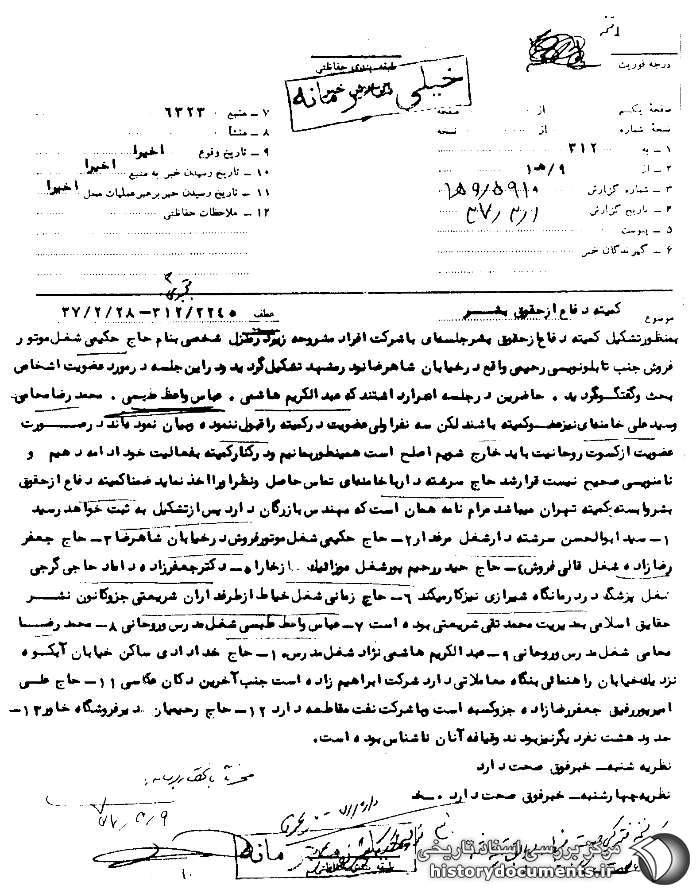 درجه فوریت
طبقه بندی حفاظتی
خیلی محرمانه
صفحهٔ یکم از صفحه
نسخهٔ شماره از نسخه
۱ – به ۳۱۲
۲ – از ۹/ه۱
۳ – شماره گزارش
۴ – تاریخ گزارش
۵ – پیوست
۶ – گیرندگان خبر
۷ – منبع ۶۳۲۳
۸ – منشأ
۹ – تاریخ وقوع اخیرا
۱۰ – تاریخ رسیدن خبر به منبع اخیرا
۱۱ – تاریخ رسیدن خبر برهبر عملیات محل اخیرا
۱۲ – ملاحظات حفاظتی
موضوع کمیته دفاع از حقوق بشر عطف ۳۱۲/۲۲۴۵–۳۷/۲/۲۸
بمنظور تشکیل کمیته دفاع از حقوق بشر جلسه‌ای با شرکت افراد مشروحه زیر در منزل شخصی بنام حاج حکیمی شغل موتور
فروش جنب تابلو نویسی رحیمی واقع در خیابان شاهرضا نو در مشهد تشکیل گردید و در این جلسه در مورد عضویت اشخاص
بحث و گفتگو گردید . حاضرین در جلسه اصرار داشتند که عبدالکریم هاشمی . عباس واعظ طبسی . محمد رضا محامی
وسید علی خامنه‌ای نیز عضو کمیته باشند لکن سه نفر اولی عضویت در کمیته را قبول ننموده و بیان نموده‌اند در صورت
عضویت از کسوت روحانیت باید خارج شویم اصلح است همینطور بمانیم و در کنار کمیته بفعالیت خود ادامه دهیم و
نامنویسی صحیح نیست قرار شد حاج سرشته دار با خامنه‌ای تماس حاصل و نظر او را اخذ نماید ضمنا کمیته دفاع از حقوق
بشر وابسته کمیته تهران میباشد مرام نامه همان است که مهندس بازرگان دارد پس از تشکیل به ثبت خواهد رسید
۱– سید ابوالحسن سرشته دار شغل مرغدار ۲– حاج حکیمی شغل موتور فروش در خیابان شاهرضا ۳– حاج جعفر
رضا زاده شغل قالی فروش ۴– حاج حیدر رحیم پور شغل بازخارا ۵– دکتر جعفرزاده داماد حاجی گرجی
شغل پزشگ در درمانگاه شیرازی نیز کار میکند ۶– حاج زمانی شغل خیاط از طرفداران شریعتی جزو کانون نشر
حقایق اسلامی بمدیریت محمد تقی شریعتی بوده است ۷– عباس واعظ طبسی شغل مدرس و روحانی ۸– محمد رضا
محامی شغل مدرس و روحانی ۹– عبدالکریم هاشمی نژاد شغل مدرس ۱۰– حاج خدادادی ساکن خیابان آبکوه
نزدیک خیابان راهنمائی بنگاه معاملاتی دارد شرکت ابراهیم زاده است جنب آخرین دکان عکاسی ۱۱– حاج علی
امیرپور رفیق جعفر رضا زاده جزو کسبه است و با شرکت نفت مقاطعه دارد ۱۲– حاج رحیمیان مدیر فروشگاه خاور ۱۳–
حدود هشت نفر دیگر نیز بودند و قیافه آنان ناشناس بوده است.
نظریه شنبه– خبر فوق صحت دارد
نظریه چهارشنبه– خبر فوق صحت دارد .
مرکز بررسی اسناد تاریخی
historydocuments.ir